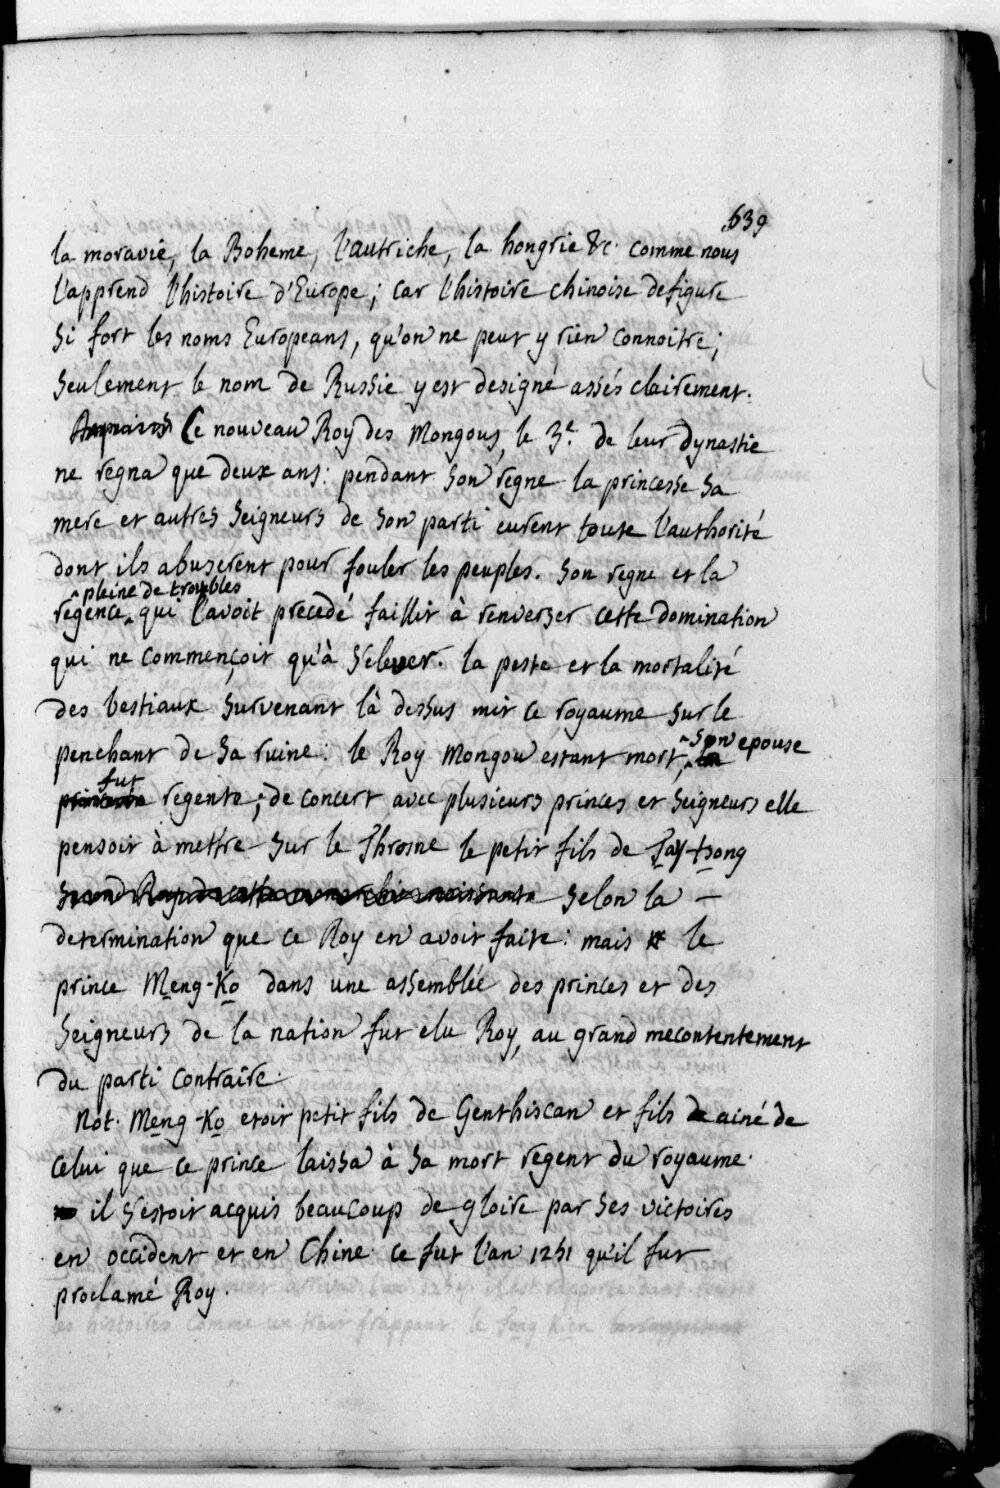 639
la moravie, la Boheme, l'autriche, la hongrie &c. comme nous
l'apprend l'histoire d'Europe; car l'histoire chinoise defigure
si fort les noms Europeans, qu'on ne peut y rien connoitre;
seulement le nom de Russie y est designé assés clairement.
Ce nouveau Roy des Mongous, le 3e. de leur dynastie
ne regna que deux ans: pendant son regne la princesse sa
mere et autres seigneurs de son parti eurent toute l'authorité
dont ils abuserent pour fouler les peuples. Son regne et la
pleine de troubles
régence qui l'avoit precedé faillit à renverser cette domination
qui ne commençoit qu'à s'elever. la peste et la mortalité
des bestiaux survenant là dessus mit ce royaume sur le
penchant de sa ruine: le Roy Mongou estant mort, son epouse
fut
regente; de concert avec plusieurs princes et seigneurs elle
pensoit à mettre sur le Throsne le petit fils de Tay-tsong
selon la
determination que ce Roy en avoit faite: mais le
prince Meng-Ko dans une assemblée des princes et des
Seigneurs de la nation fut élu Roy, au grand mecontentement
du parti contraire.
Not. Meng-Ko etoit petit fils de Genthiscan et fils ainé de
celui que ce prince laissa à sa mort regent du royaume.
il s'estoit acquis beaucoup de gloire par ses victoires
en occident et en Chine. ce fut l'an 1251 qu'il fut
proclamé Roy.